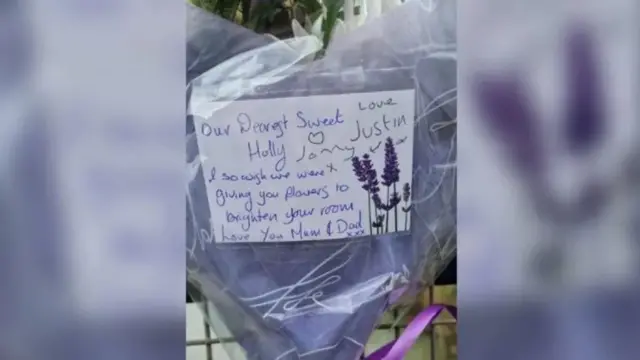 Our Dearest Sweet
Love
Holly ♡ Justin
I so wish we were x
giving you flowers to
brighten your room
Love You Mum & Dad
xxx